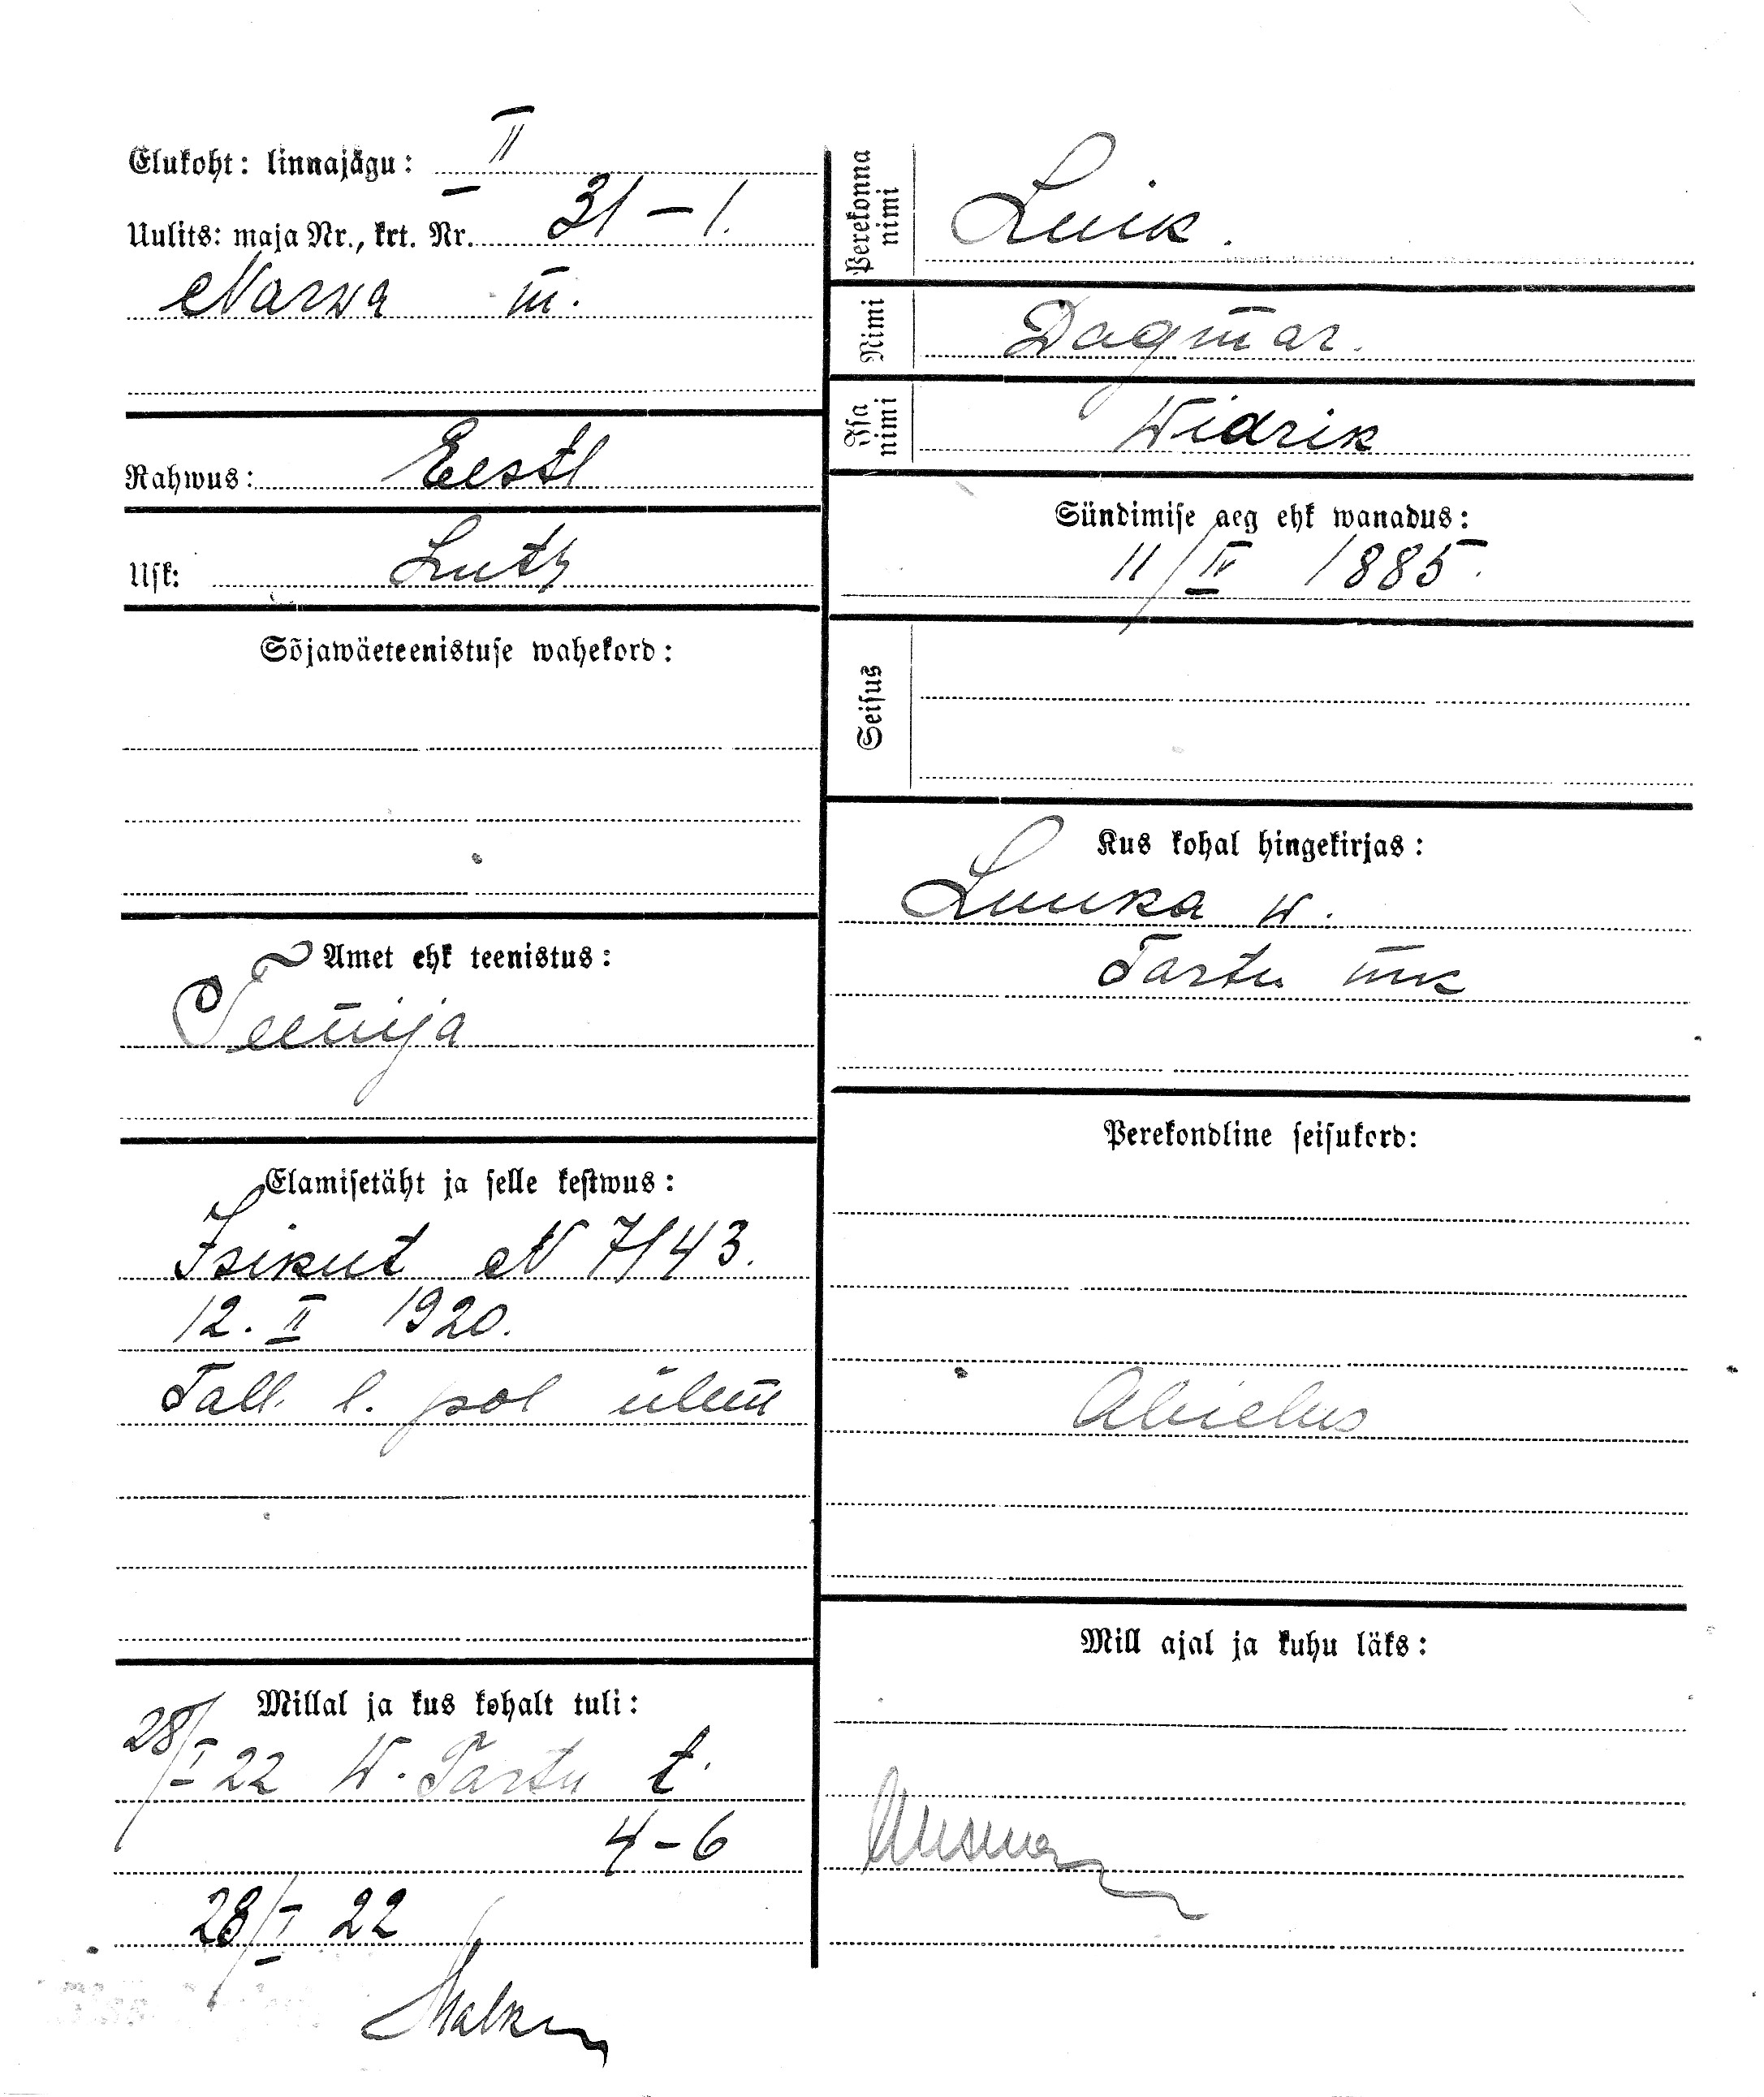 Elukoht: linnajagu: II
Uulits: maja Nr., krt. Nr. 31 – 1.
Narwa m.
Rahwus: Eestl
Usk: Luth
Sõjawäeteenistuse wahekord:
Amet ehk teenistus:
Teenija
Elamisetäht ja selle kestwus:
Isikut N 7143.
12. II 1920.
Tall. l. pol ülem
Millal ja kus kohalt tuli:
28/I 22 W. Tartu t.
4 – 6
28/I 22
Perekonna nimi
Luik.
Nimi
Dagmar.
Isa nimi
Widrik
Sündimise aeg ehk wanadus:
11/IV 1885.
Seisus
Kus kohal hingekirjas:
Luuka w.
Tartu mk
Perekondline seisukord:
Abielus
Mill ajal ja kuhu läks: